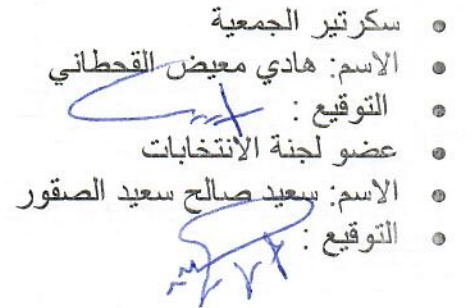 • سكرتير الجمعية
• الاسم: هادي معيض القحطاني
• التوقيع :
• عضو لجنة الانتخابات
• الاسم: سعيد صالح سعيد الصقور
• التوقيع :